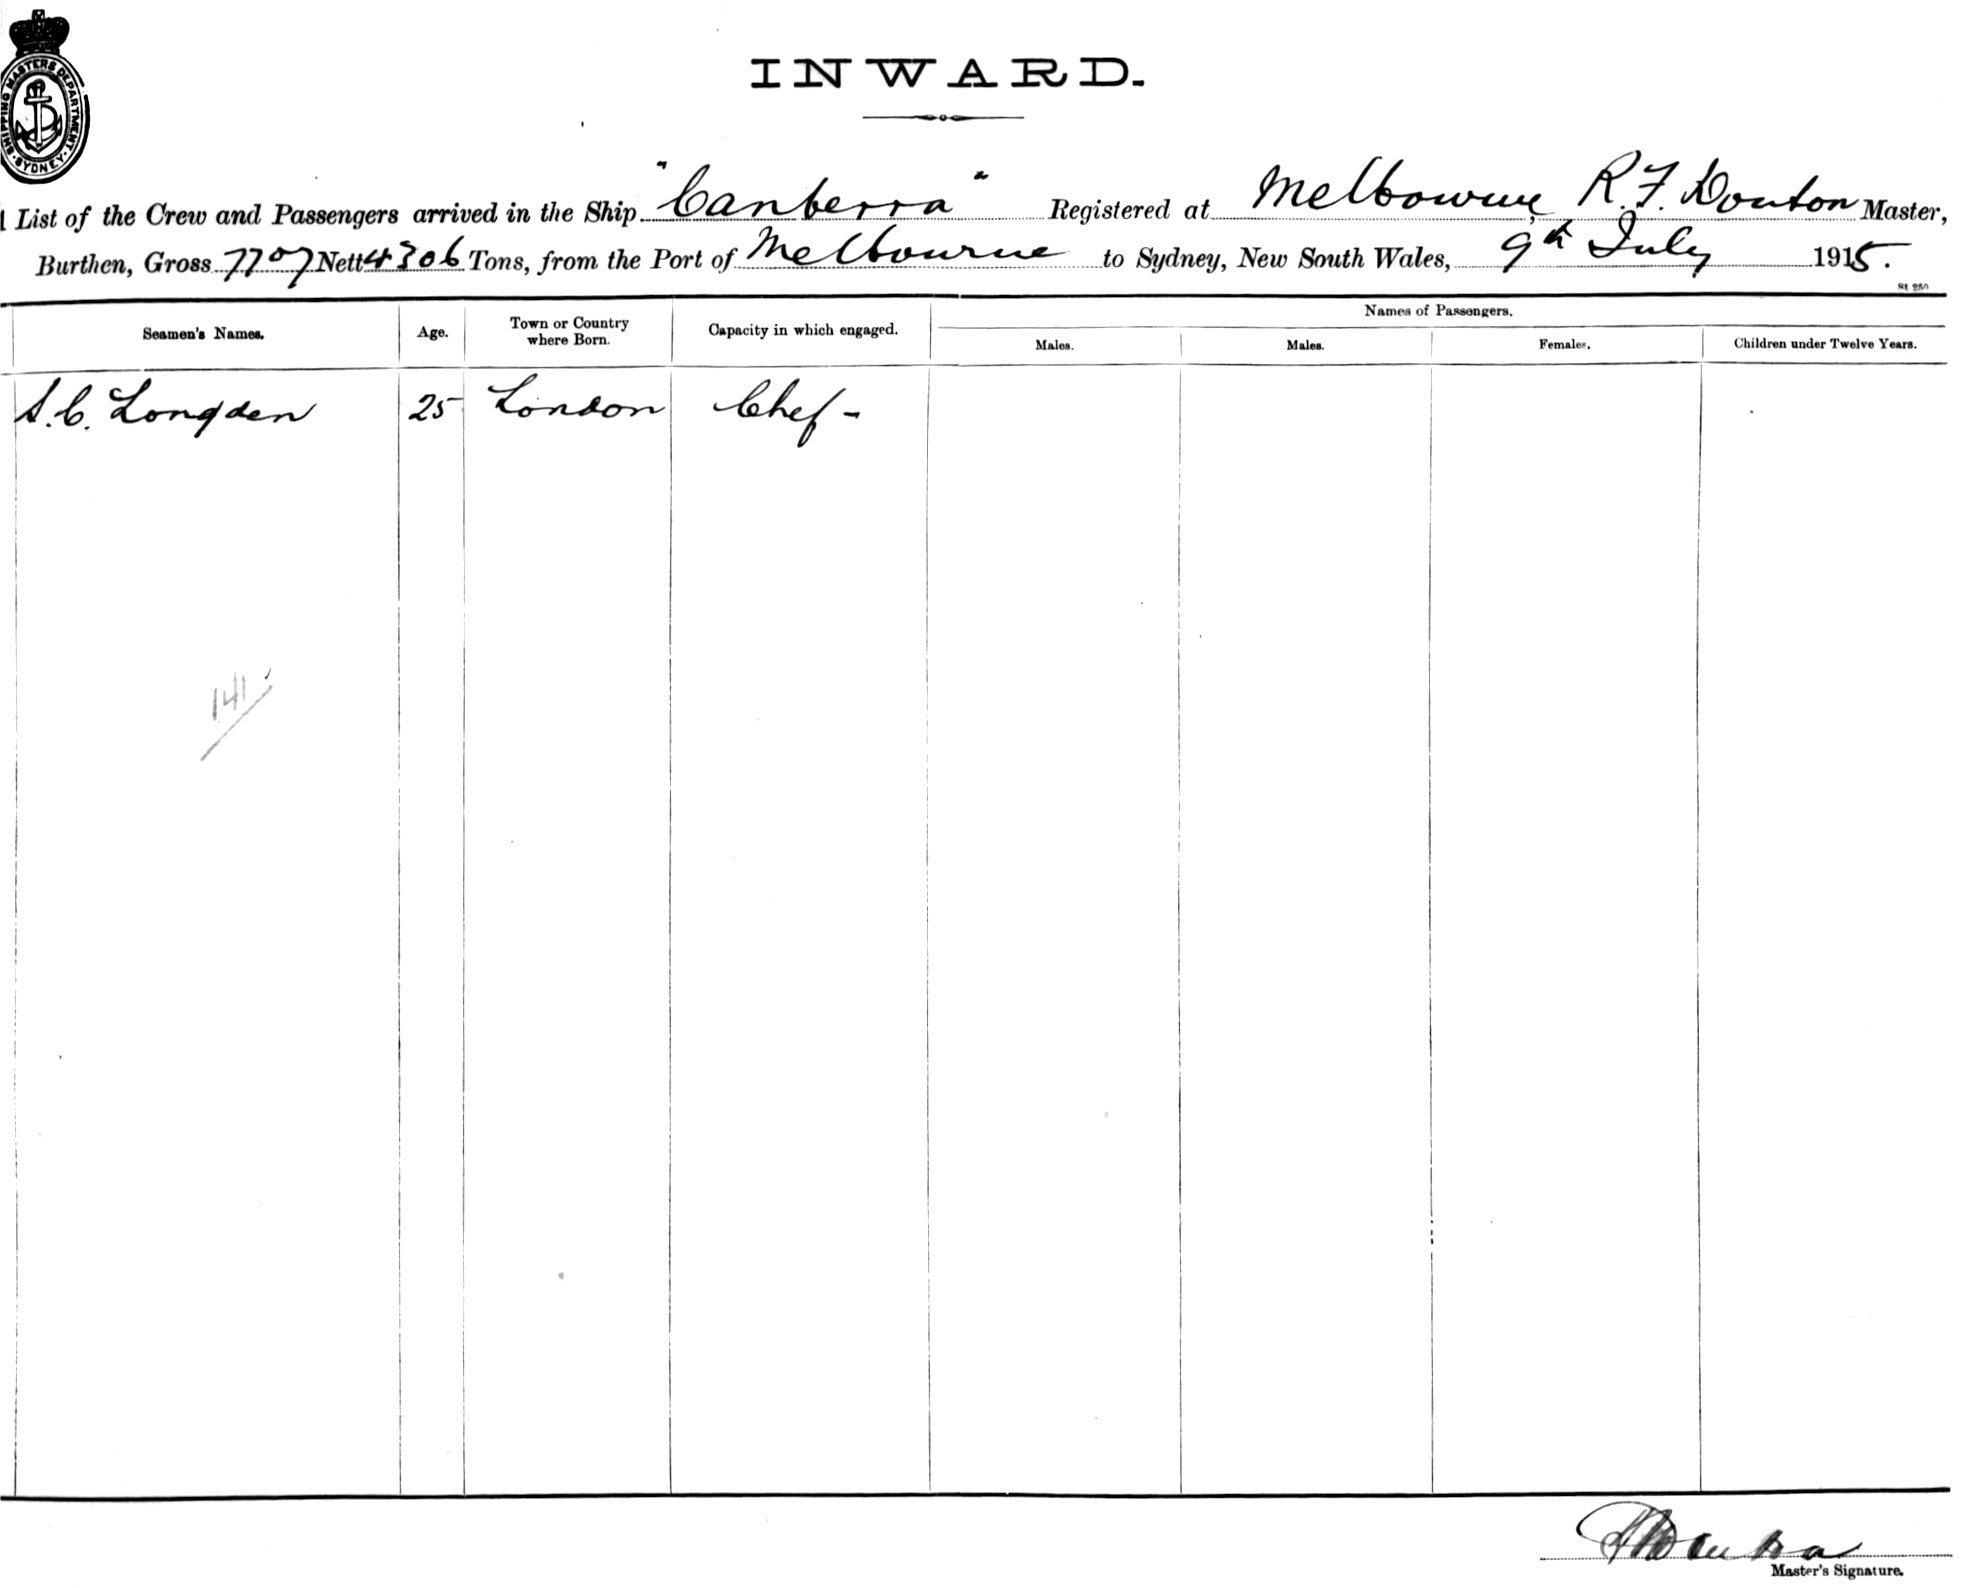 SHIPPING MASTERS DEPARTMENT. SYDNEY
INWARD.
List of the Crew and Passengers arrived in the Ship "Canberra" Registered at Melbourne, R. F. Douton Master,
Burthen, Gross 7707 Nett 4306 Tons, from the Port of Melbourne to Sydney, New South Wales, 9th July 1915.
St 250
Names of Passengers.
Seamen's Names. Age. Town or Country where Born. Capacity in which engaged. Males. Males. Females. Children under Twelve Years.
S. C. Longden 25 London Chef -
141
Master's Signature.